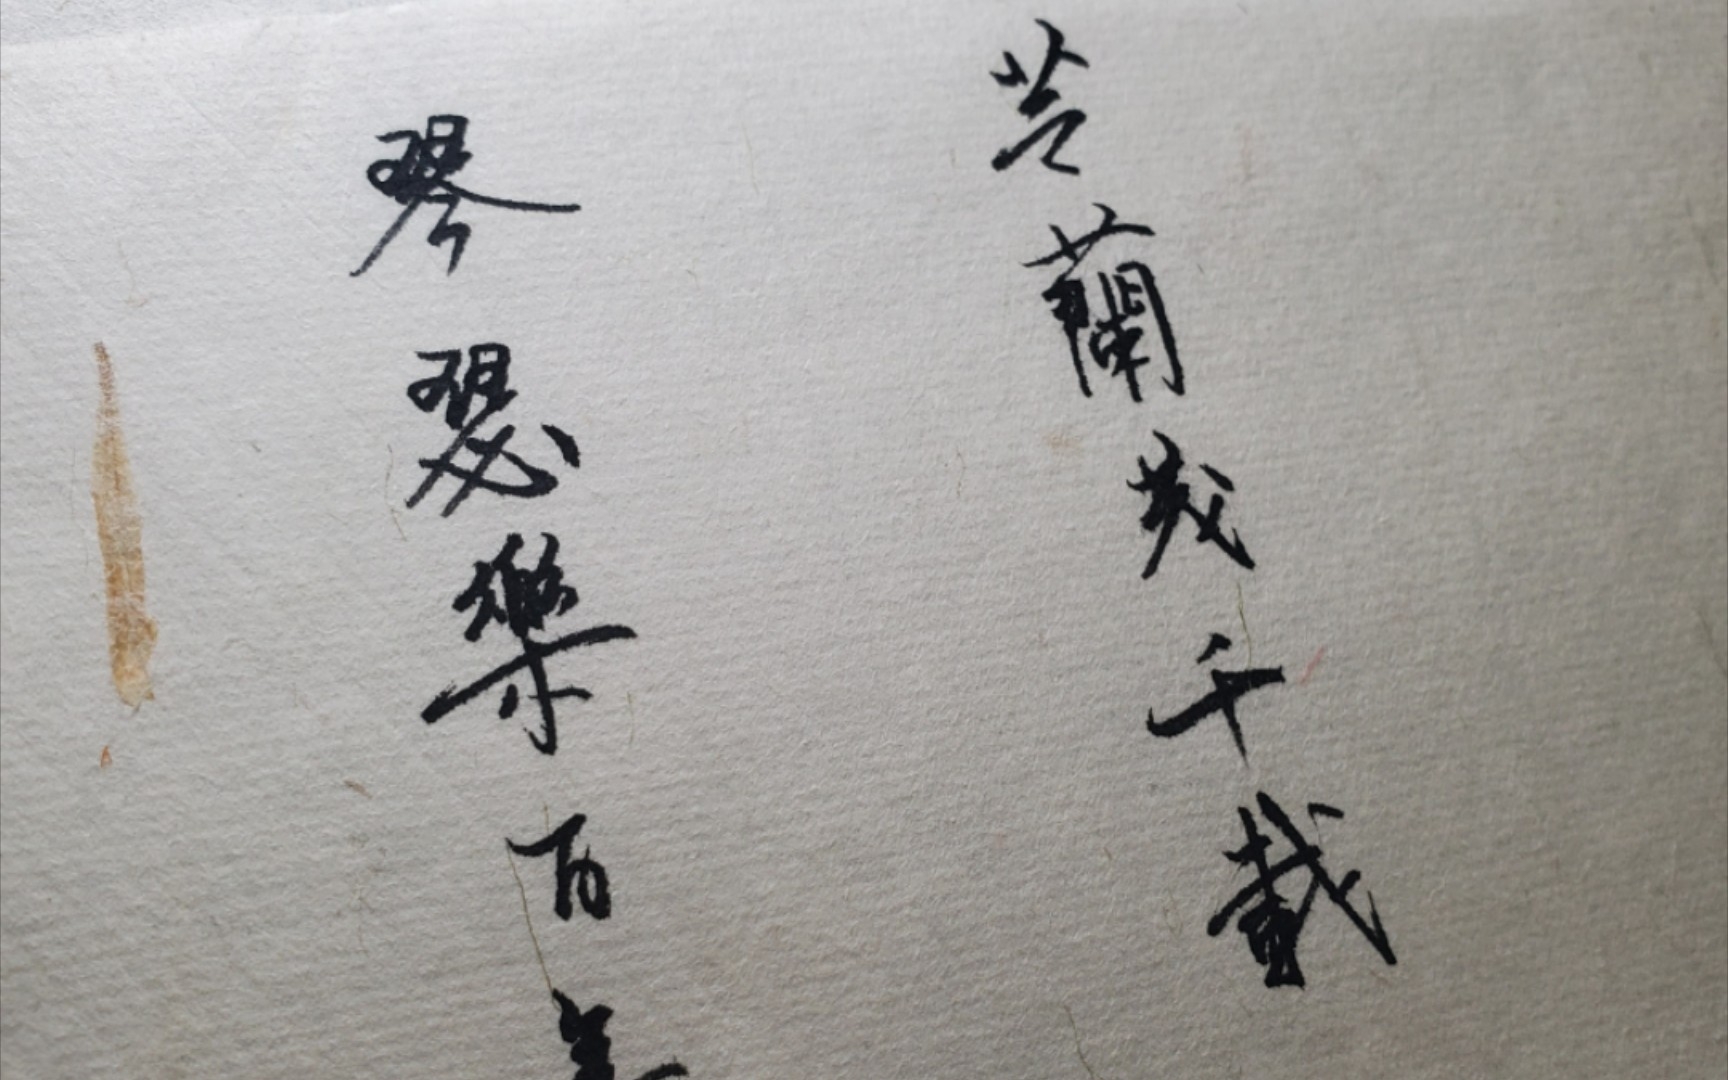 芝蘭茂千載
琴瑟樂百年